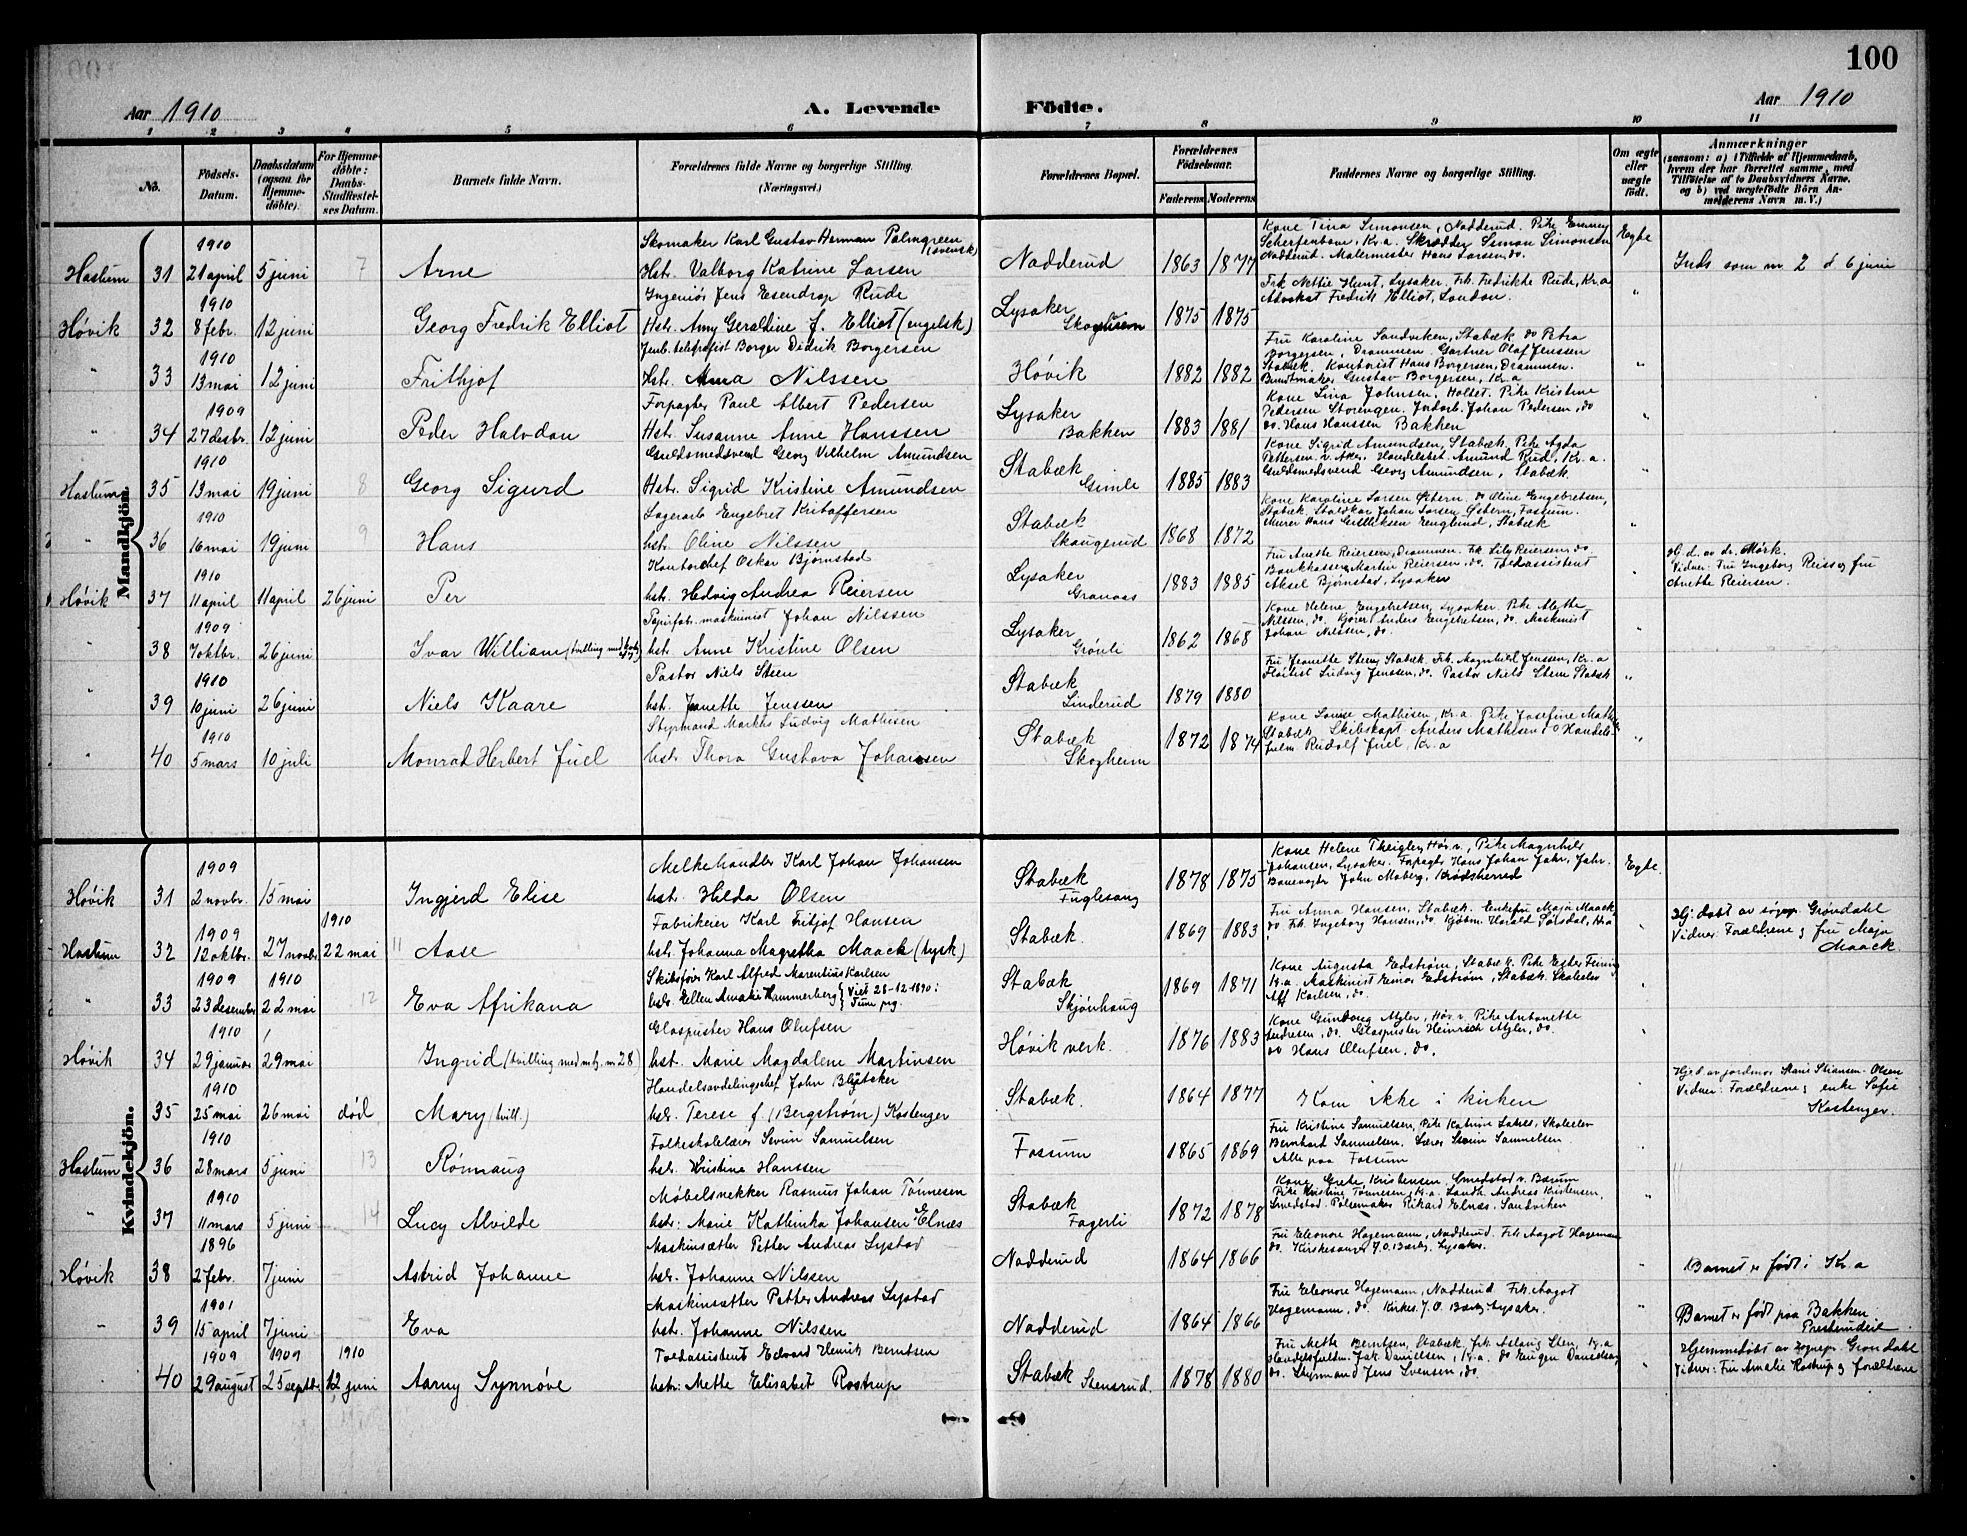 100
Aar 1910 A. Levende Födte. Aar 1910
1 2 3 4 5 6 7 8 9 10 11
No. Födsels-Datum. Daabsdatum (ogsaa for Hjemmedöbte). For Hjemmedöbte: Daabs-Stadfæstelses Datum. Barnets fulde Navn. Forældrenes fulde Navne og borgerlige Stilling. (Næringsvei.) Forældrenes Bopæl. Forældrenes Födselsaar. Faderens Moderens Faddernes Navne og borgerlige Stilling. Om ægte eller uægte födt. Anmærkninger (saasom: a) i Tilfælde af Hjemmedaab, hvem der har forrettet samme, med Tilföielse af to Daabsvidners Navne. og b) ved uægtefödte Börn Anmelderens Navn m. V.)
Mandkjön.
Haslum 31 1910 21 april 5 juni 7 Arne Skomaker Karl Gustav Herman Palmgreen (svensk)
Hstr. Valborg Katrine Larsen Nadderud 1863 1877 Kone Tina Simonsen, Nadderud. Pike Emmey
Kr.a. Skrædder Simon Simonsen
Nadderud. Malermester Hans Larsen, do. Egte Inds som nr 2 d 6 juni
Høvik 32 1910 8 febr. 12 juni Georg Fredrik Elliot Ingeniør Jens Esendrop Rude
Hstr. Amy Geraldine f. Elliot (engelsk) Lysaker Skogheim 1875 1875 Frk Nettie Hunt, Lysaker. Frk. Fredrikke Rude, Kr.a
Advokat Fredrik Elliot, London. "
" 33 1910 13 mai 12 juni Frithjof Jenb. telegrafist Borger Didrik Borgersen
Hstr. Anna Nilssen Høvik 1882 1882 Fru Karoline Sandviken, Stabæk. do Petra
Borgersen, Drammen. Gartner Olaf Jenssen
Stabæk. Kontorist Hans Borgersen, Drammen.
Bundtmaker Gustav Borgersen, Kr.a "
" 34 1909 27 desbr. 12 juni Peder Halvdan Forpagter Paul Albert Pedersen
Hstr. Susanne Anne Hanssen Lysaker Bakken 1883 1881 Kone Lina Johnsen, Holset. Pike Kristine
Pedersen Storengen. Jordarb. Johan Pedersen, do
do. Hans Hanssen Bakken "
Haslum 35 1910 13 mai 19 juni 8 Georg Sigurd Guldsmedsvend Georg Vilhelm Amundsen
Hstr. Sigrid Kristine Amundsen Stabæk Gimle 1885 1883 Kone Sigrid Amundsen, Stabæk. Pike Agda
Pettersen v. Aker. Handelsbet. Amund Rud, Kr.a.
Guldsmedsvend Georg Amundsen, Stabæk "
" 36 1910 16 mai 19 juni 9 Hans Lagerarb Engebret Kristoffersen
hstr. Oline Nilssen Stabæk Skougerud 1868 1872 Kone Karoline Larsen Østern. do Oline Engebretsen,
Stabæk. Staldkar Johan Larsen Østern, Fossum.
Murer Hans Gulliksen Englund, Stabæk "
Høvik 37 1910 11 april 11 april 26 juni Per Kontorchef Oskar Bjørnstad
hstr. Hedvig Andrea Reiersen Lysaker Granaas 1883 1885 Fru Anette Reiersen, Drammen. Frk Lily Reiersen, do
Bankkasserer Martin Reiersen, do. Toldassistent
Aksel Bjønstad, Lysaker " Hj. d. av dr. Mørk.
Vidner: Fru Ingeborg Reiss og fru
Anette Reiersen.
" 38 1909 7 oktbr. 26 juni Ivar William (tvilling med Papirfab. maskinist Johan Nilssen
hstr. Anne Kristine Olsen Lysaker Grønli 1862 1868 Kone Helene Engebretsen, Lysaker. Pike Alethe
Nilssen, do. Kjører Anders Engebretsen, do. Maskinist
Johan Nilssen, do. "
" 39 1910 10 juni 26 juni Niels Kaare Pastor Niels Steen
hst. Jeanette Jenssen Stabæk Linderud 1879 1880 Fru Jeanette Steen, Stabæk. Frk. Magnhild Jenssen, Kr.a
Fløitist Ludvig Jenssen, do. Pastor Niels Steen Stabæk "
" 40 1910 5 mars 10 juli Monrad Herbert Juel Styrmand Markus Ludvig Mathisen
hstr Thora Gustava Johansen Stabæk Skogheim 1872 1874 Kone Louise Mathisen, Kr.a. Pike Josefine Mathisen
Stabæk. Skibskapt. Anders Mathisen do Handels-
fulm. Rudolf Juel, Kr.a "
Kvindekjön.
Høvik 31 1909 2 novbr. 15 mai Ingjerd Elise Melkehandler Karl Johan Johansen
hst. Hilda Olsen Stabæk Fuglesang 1878 1875 Kone Helene Høv. v., Pike Magnhild
Johansen, Lysaker. Forpagter Hans Johan Jahr, Jahr.
Banevogter John Moberg, Krødsherred Egte.
Haslum 32 1909 12 oktbr. 27 novbr 1910 22 mai 11 Aase Fabrikeier Karl Fritjof Hansen
hstr. Johanna Magretha Maack (tysk) Stabæk. 1869 1883 Fru Anna Hansen, Stabæk. Enkefru Maja Maack,
do Frk. Ingeborg Hansen, do Kjøbm. Harald Sørsdal, " Hj: døbt av sogepr. Grøndahl
Vidner: Forældrene og fru Maja
Maack.
" 33 1909 23 desember 1910 22 mai 12 Eva Afrikana Skibsfør. Karl Alfred Marentius Karlsen
hstr. Ellen Amalie Hammerberg } Viet 28-12-1890 i
Tune prg. Stabæk Skjønhaug 1869 1871 Kone Augusta Edstrøm, Stabæk. Pike Ester
Kr.a. Maskinist Einar Edstrøm, Stabæk. Skoleelev
Alf Karlsen, do. "
Høvik 34 1910 29 januar 29 mai Ingrid (tvilling med mkj. nr 28 Glaspuster Hans Olufsen
hst. Marie Magdalene Martinsen Høvik verk. 1876 1883 Kone Gundborg Høv. v. Pike Antonette
Andresen, do. Glaspuster Heinrich do.
do Hans Olufsen, do. "
35 1910 25 mai 26 mai død Mary (tvill.) Handelsavdelingschef John
hstr. Terese f. (Bergstrøm) Kostenger Stabæk. 1864 1877 Kom ikke i kirken " Hj.d. av jordmor Stiansen-Olsen
Vidner: Forældrene og enke Sofie
Kostenger.
Haslum 36 1910 28 mars 5 juni 13 Rønnaug Folkeskolelærer Severin Samuelsen
hstr. Kristine Hanssen Fossum 1865 1869 Fru Kristine Samuelsen, Pike Katrine Skoleelev
Bernhard Samuelsen. Lærer Severin Samuelsen.
Alle paa Fossum "
" 37 1910 11 mars 5 juni 14 Lucy Alvilde Møbelsnekker Rasmus Johan Tønnesen
hstr: Marie Kathinka Johansen Elnæs Stabæk Fagerli 1872 1878 Kone Grete Kristensen, Smedstad v. Bærum
Pike Kristine Tønnesen, Kr.a. Landh. Andreas Kristensen,
Smedstad. Pølsemaker Rikard Elnæs. Sandviken "
Høvik 38 1896 2 febr. 7 juni Astrid Johanne Maskinsætter Petter Andreas Lystad
hstr. Johanne Nilssen Nadderud 1864 1866 Fru Eleonore Hagemann, Nadderud. Frk. Aagot Hagemann
do. Kirkesanger J. O. Lysaker. " Barnet er født i Kr.a
" 39 1901 15 april 7 juni Eva Maskinsætter Petter Andreas Lystad
hstr. Johanne Nilssen Nadderud 1864 1866 Fru Eleonore Hagemann, Nadderud. Frk. Aagot
Hagemann, do. Kirkes. J. O. Lysaker. " Barnet er født paa Bakken
40 1909 29 august 1909 25 septbr 1910 12 juni Aarny Synnøve Toldassistent Edvard Henrik Berntsen
hstr: Mette Elisabet Rostrup Stabæk Stensrud. 1878 1880 Fru Mette Berntsen, Stabæk. Frk. Aslaug Sten, Kr.a
Handelsfuldm. Jak. Danielsen, Kr.a. do Eugen Danielsen
do. Styrmand Jens Svensen, do. " Hjemmedøbt av sognepr. Grøndahl
Vidner: Fru Amalie Rostrup og forældrene